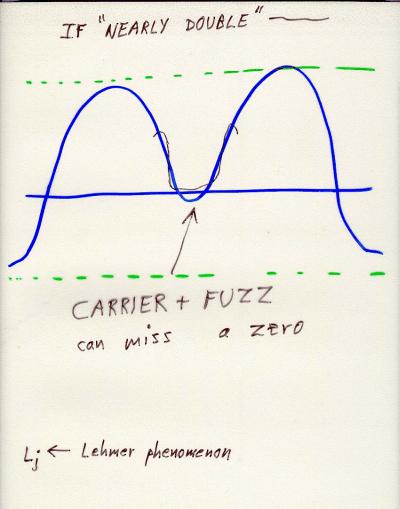 IF "NEARLY DOUBLE" —
CARRIER + FUZZ
can miss a zero
Lj ← Lehmer phenomenon